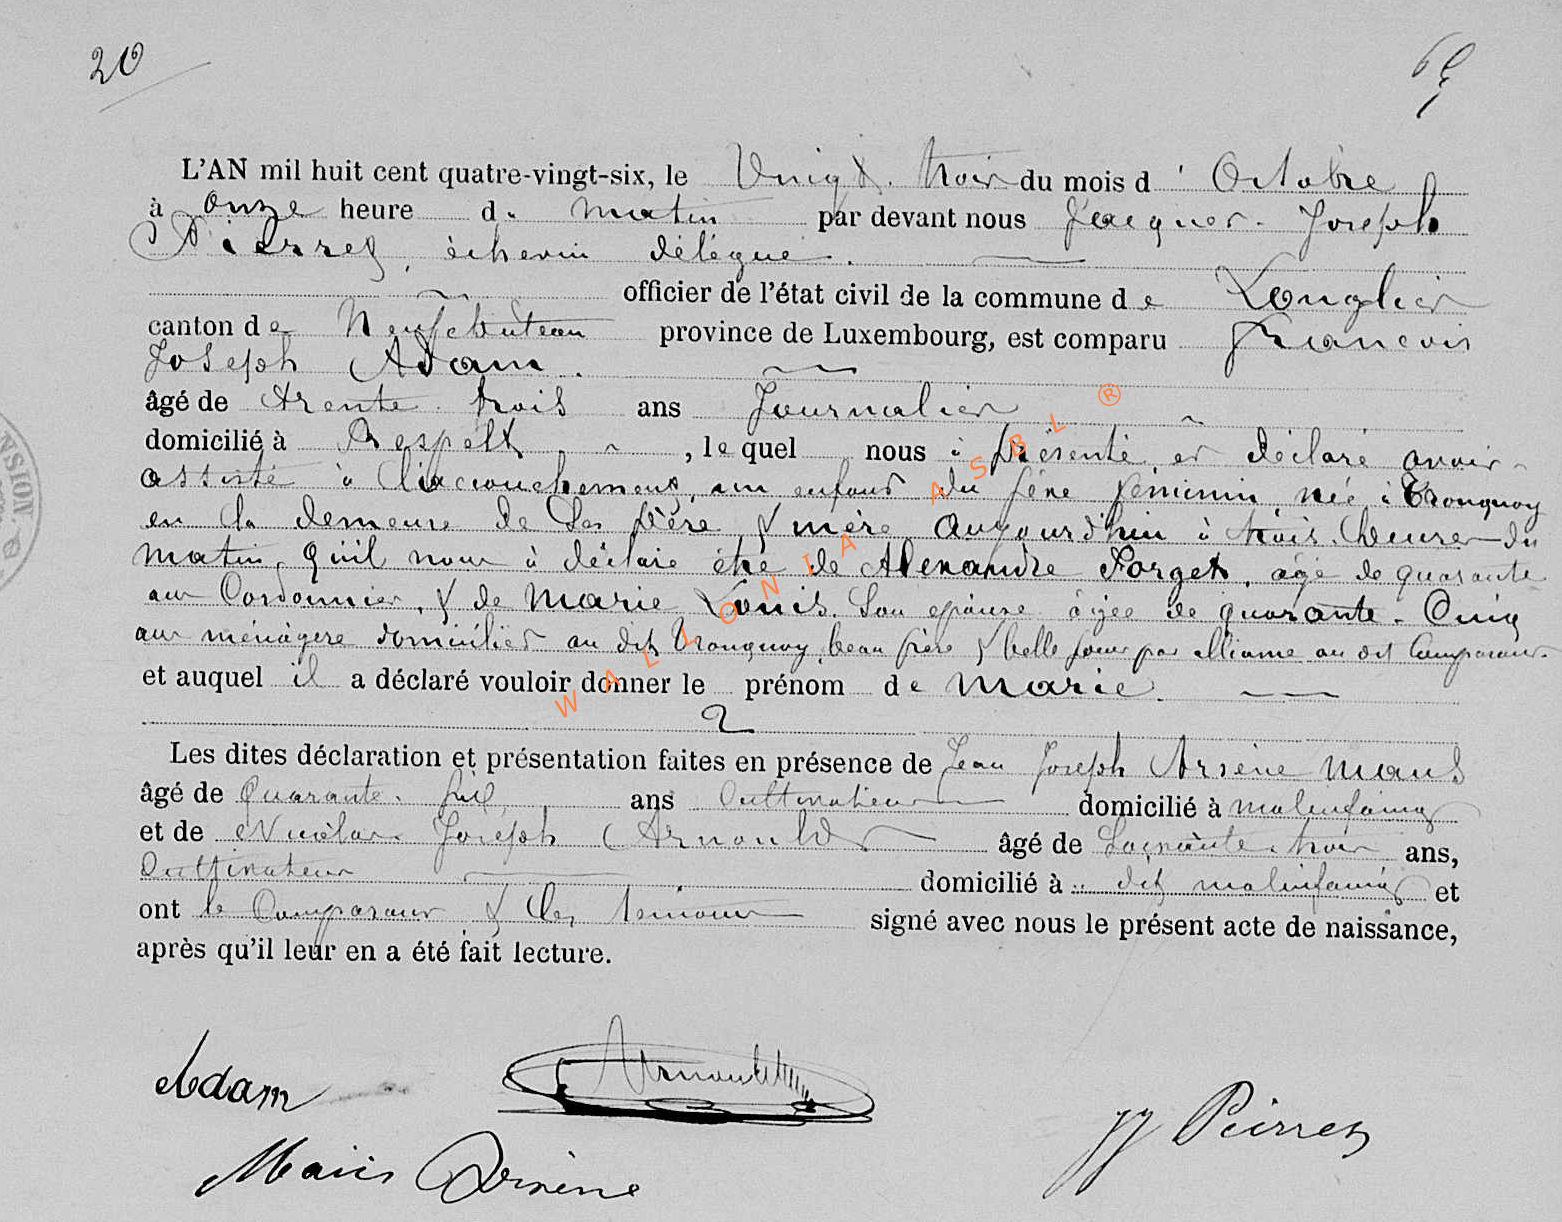 20
69
L'AN mil huit cent quatre-vingt-six, le Vingt trois du mois d'Octobre
à onze heure du matin par devant nous Jacques-Joseph
Pierret, échevin délégué.
officier de l'état civil de la commune de Longlier
canton de Neufchâteau province de Luxembourg, est comparu François
Joseph Adam.
âgé de trente trois ans Journalier
domicilié à Respelt, lequel nous à présenté et déclaré avoir
assisté à l'accouchement, un enfant du sexe féminin, née à Tronquoy
en la demeure de ses père & mère aujourd'hui à trois heures du
matin, qu'il nous à déclaré être de Alexandre Forget, âgé de quarante
ans Cordonnier, & de Marie Louis, son épouse âgée de quarante-Cinq
ans ménagère domiciliés au dit Tronquoy, beau frère & belle soeur par alliance au dit Comparant
et auquel il a déclaré vouloir donner le prénom de Marie.
Les dites déclaration et présentation faites en présence de Jean Joseph Arsène Maus
âgé de Quarante ans Cultivateur domicilié à Molinfaing
et de Nicolas Joseph Arnould âgé de Soixante trois ans,
Cultivateur domicilié à dit Molinfaing et
ont le Comparant & les témoins signé avec nous le présent acte de naissance,
après qu'il leur en a été fait lecture.
Adam
Arnould
JJ Peirret
Arsène
WALLONIA ASBL ®
NSION.